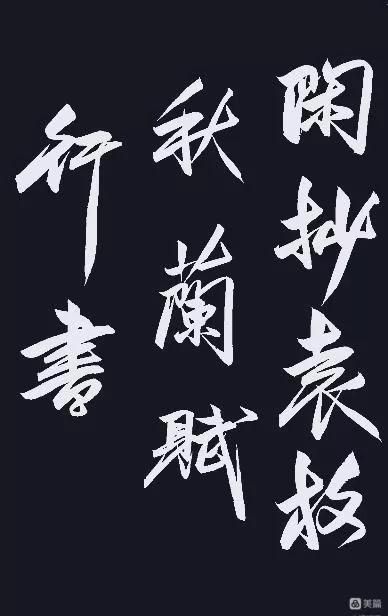 閑抄袁枚
秋蘭賦
行書
美篇